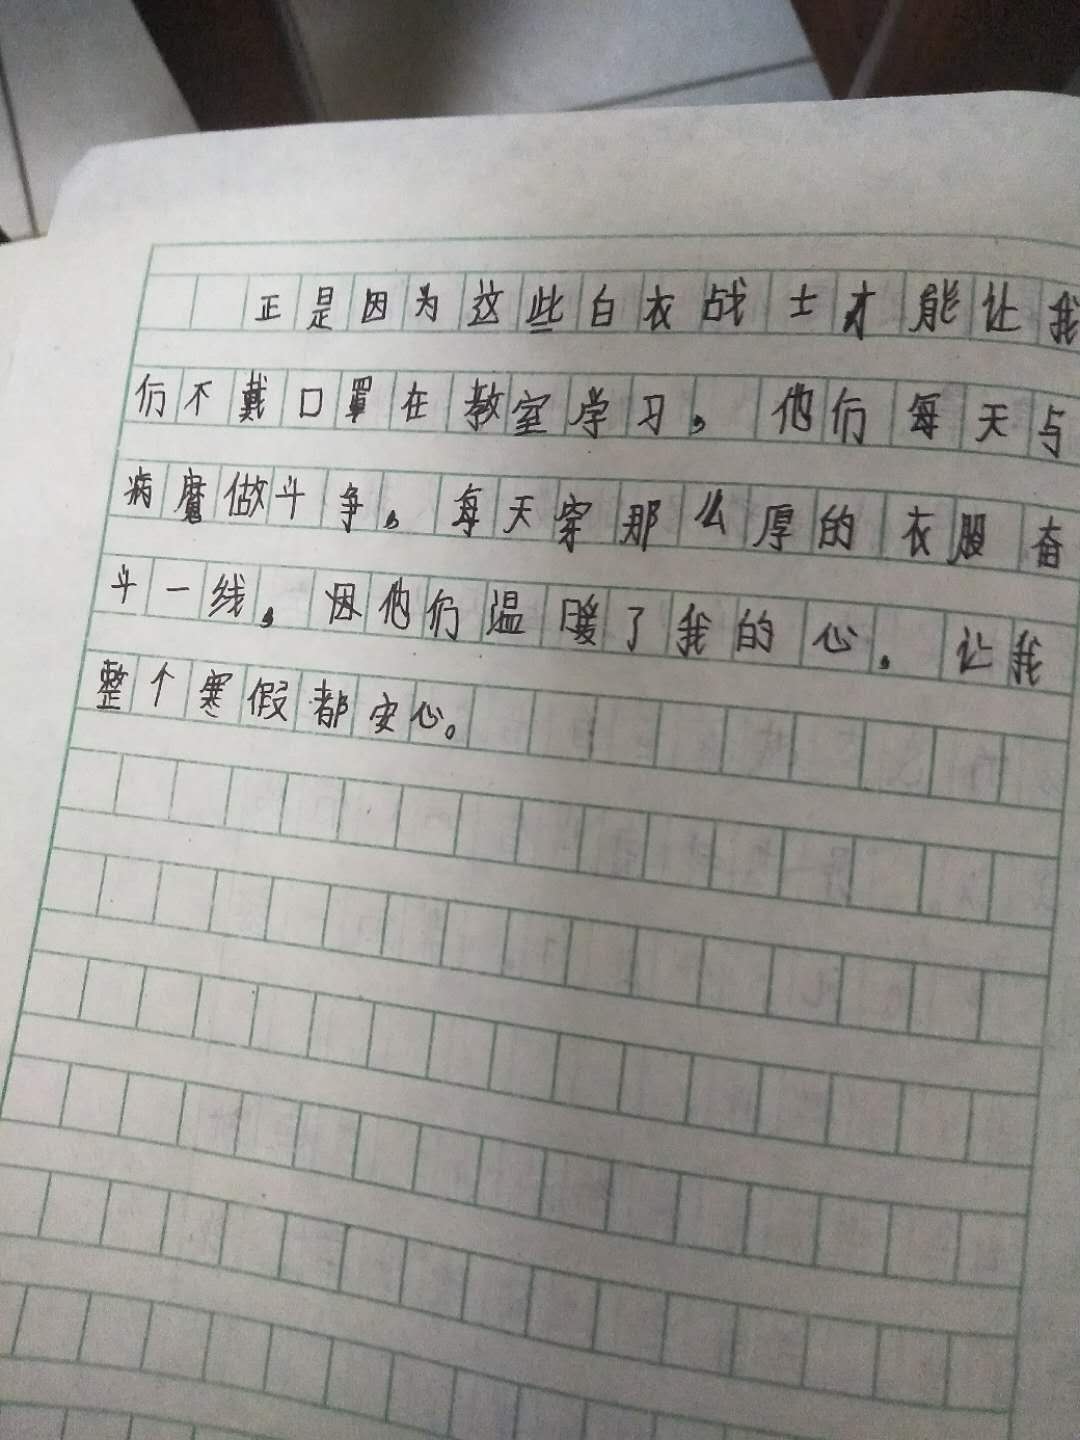 正是因为这些白衣战士才能让我
们不戴口罩在教室学习，他们每天与
病魔做斗争，每天穿那么厚的衣服奋
斗一线，因他们温暖了我的心，让我
整个寒假都安心。